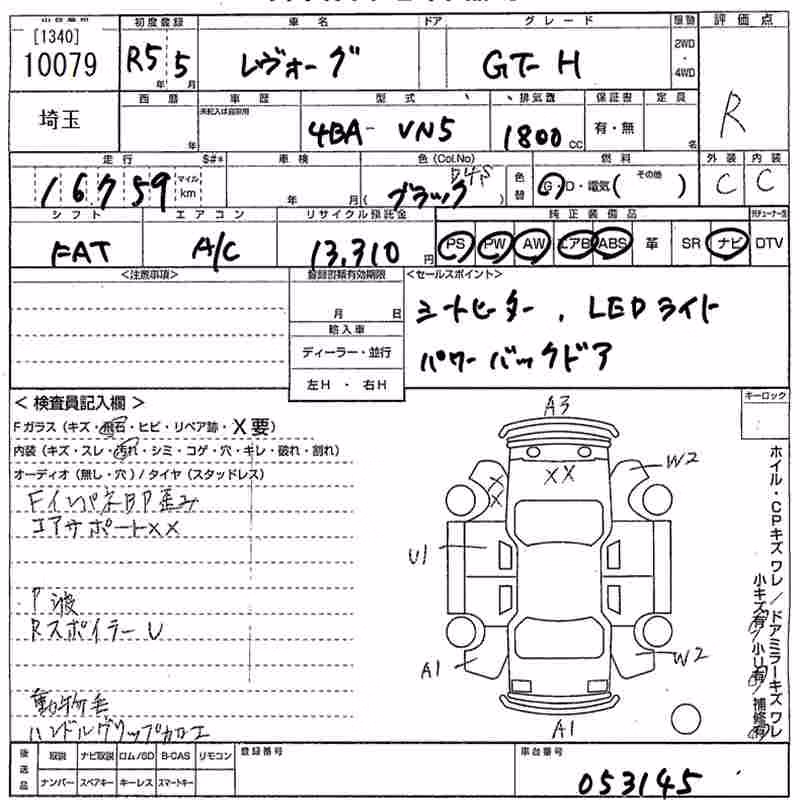 [1340]
10079
初度登録
R5 5
年 月
車名
レヴォーグ
ドア
グレード
GT-H
駆動
2WD
・
4WD
評価点
R
埼玉
西暦
年
車歴
未記入は自家用
型式
4BA- VN5
排気量
1800 CC
保証書
有・無
定員
名
走行
16,759
マイル
km
S#*
車検
年 月
色(Col.No)
D4S
(ブラック)
色替
燃料
G・D・電気( その他 )
外装
C
内装
C
シフト
FAT
エアコン
A/C
リサイクル預託金
13,310 円
純正装備品
PS PW AW エアB ABS 革 SR ナビ DTV
<注意事項>
登録書類有効期限
月 日
輸入車
ディーラー・並行
左H ・ 右H
<セールスポイント>
シートヒーター、LEDライト
パワーバックドア
<検査員記入欄>
Fガラス(キズ・飛石・ヒビ・リペア跡・X要)
内装(キズ・スレ・汚れ・シミ・コゲ・穴・キレ・破れ・割れ)
オーディオ(無し・穴)/タイヤ(スタッドレス)
Fインパネ BP歪み
コアサポートXX
P波
RスポイラーU
動物毛
ハンドルグリップカロエ
A3
XX
X
X
W2
U1
A1
W2
A1
キーロック
ホイル・CPキズ ワレ/ドアミラーキズ ワレ
小キズ有/小U有/補修有
後送品
取説 ナビ取説 ロム/SD B-CAS リモコン
ナンバー スペアキー キーレス スマートキー
登録番号
車台番号
053145